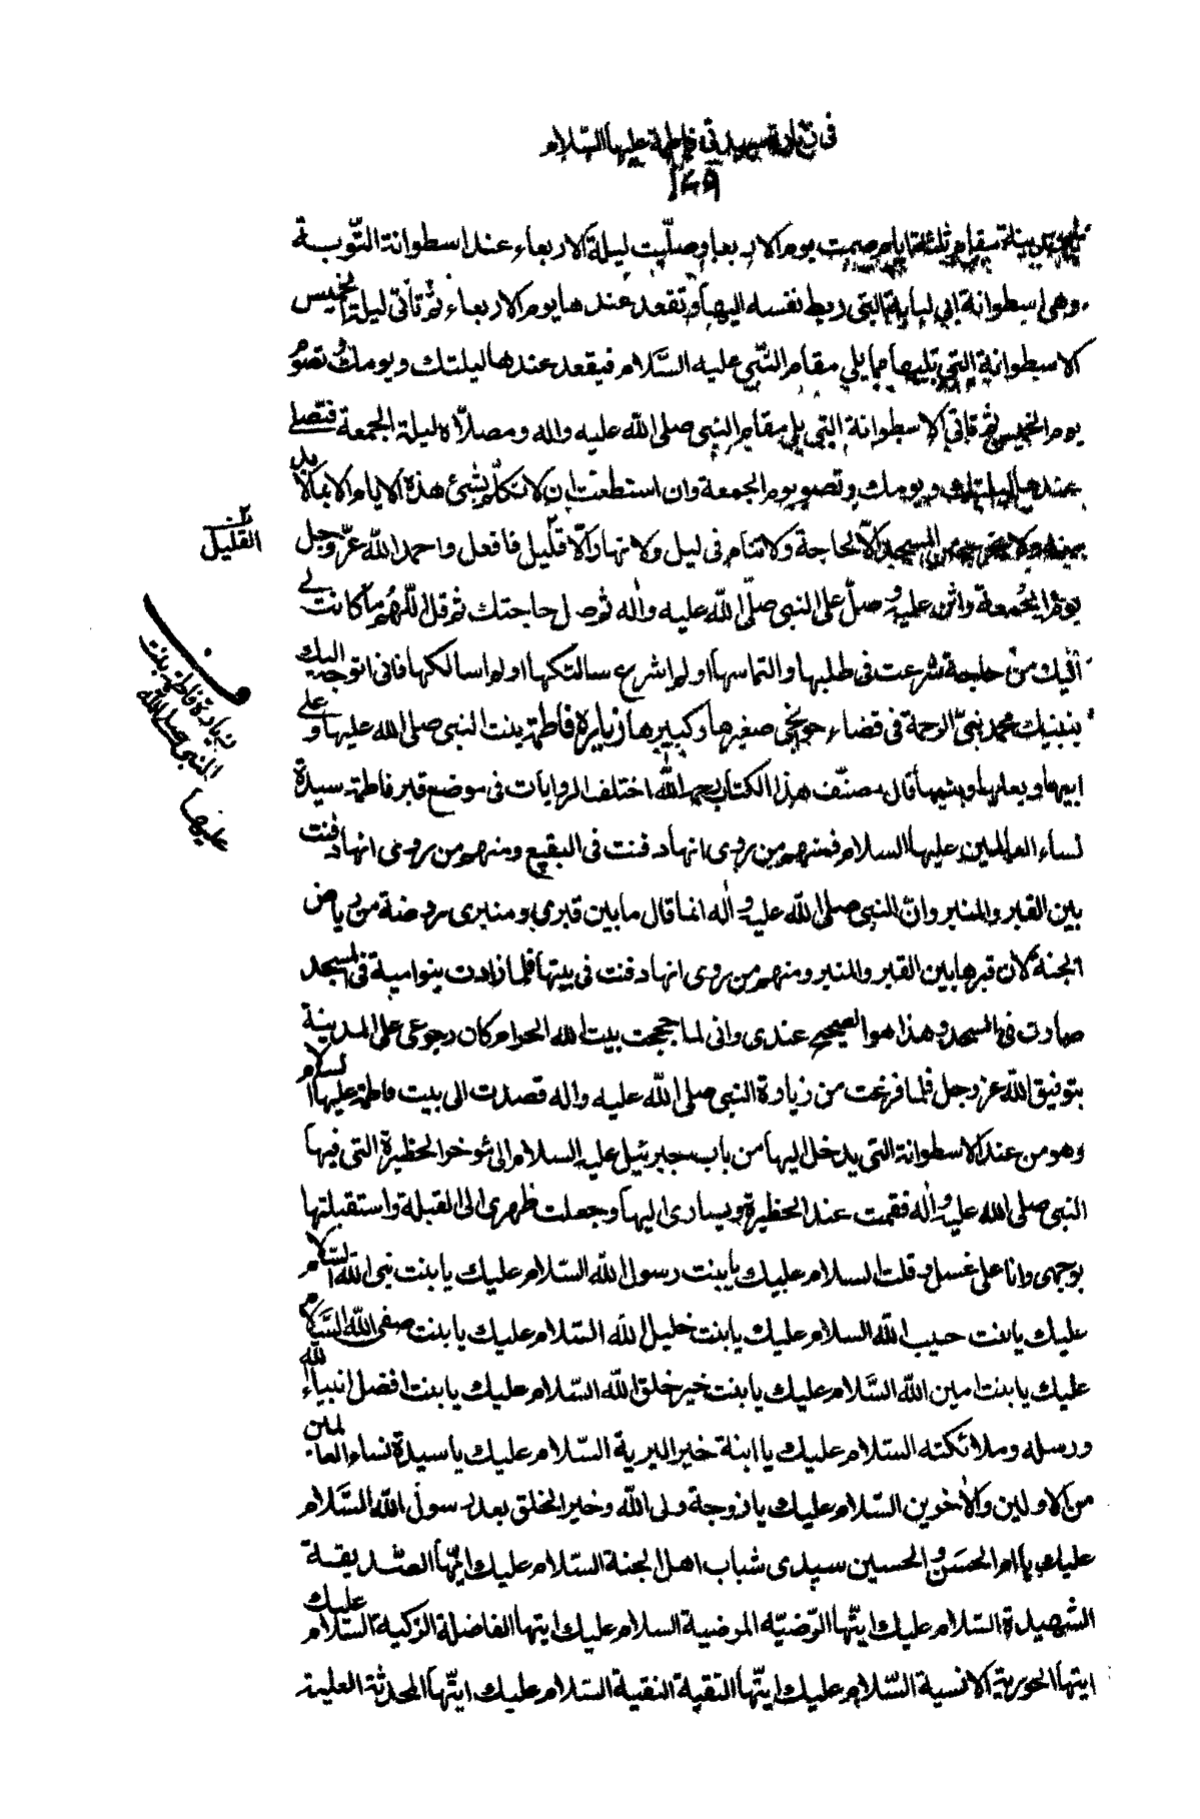 في زيارة سيدتي فاطمة عليها السلام
١٤٩
بالمدينة مقام ثلثة ايام صمت يوم الاربعا وصلّيت ليلة الاربعاء عند اسطوانة التّوبة
وهى اسطوانة ابي لبابة التي ربط نفسه اليها وتقعد عندها يوم الاربعاء ثم تأتى ليلة الخميس
الاسطوانة التي تليها مما يلي مقام النّبي عليه السَّلام فيقعد عندها ليلتك ويومك وتصوم
يوم الخميس ثم تاتي الاسطوانة التي يلي مقام النبي صلى الله عليه واله ومصلّاه ليلة الجمعة فتصلي
عندها ليلتك ويومك وتصوم يوم الجمعة وان استطعت ان لا تتكلّم بشئ هذه الايام الا بما لا بد
منه ولا تخرج من المسجد الّا لحاجة ولا تنام فى ليل ولا نهار الّا قليل فافعل واحمد الله عزّ وجل
القليل
يوم الجُمعة واثن عليه وصلّ على النبي صلّى الله عليه واله ثم سل حاجتك ثم قل اللّهم ما كانت لي
اليك من حاجة شرعت فى طلبها والتماسها او لم اشرع سالتكها او لم اسالكها فانى اتوجه اليك
بنبيك محمد نبيّ الرحمة فى قضاء حوائجي صغيرها وكبيرها زيارة فاطمة بنت النبي صلى الله عليها وعلى
زيارة فاطمة بنت
النبي صلى الله
عليها
ابيها وبعلها وبنيها قال مصنّف هذا الكتاب رحمه الله اختلفت الروايات فى موضع قبر فاطمة سيدة
نساء العالمين عليها السلام فمنهم من روى انها دفنت فى البقيع ومنهم من روى انها دفنت
بين القبر والمنبر وانّ النبي صلى الله عليه واله انما قال ما بين قبري ومنبرى روضة من رياض
الجنة لان قبرها بين القبر والمنبر ومنهم من روى انها دفنت فى بيتها فلما زادت بنو امية فى المسجد
صارت فى المسجد وهذا هو الصحيح عندى وانى لما حججت بيت الله الحرام كان رجوعى على المدينة
بتوفيق الله عز وجل فلما فرغت من زيارة النبي صلى الله عليه واله قصدت الى بيت فاطمة عليها السلام
وهو من عند الاسطوانة التى يدخل اليها من باب جبرئيل عليه السلام الى مؤخر الحظيرة التى فيها
النبي صلى الله عليه واله فقمت عند الحظيرة ويسارى اليها وجعلت ظهرى الى القبلة واستقبلتها
بوجهى وانا على غسل وقلت السلام عليك يا بنت رسول الله السّلام عليك يا بنت نبى الله السّلام
عليك يا بنت حبيب الله السلام عليك يا بنت خليل الله السّلام عليك يا بنت صفى الله السَّلام
عليك يا بنت امين الله السَّلام عليك يا بنت خير خلق الله السّلام عليك يا بنت افضل انبياء الله
ورسله وملائكته السّلام عليك يا ابنة خير البرية السّلام عليك يا سيدة نساء العالمين
من الاولين والاخرين السّلام عليك يا زوجة ولى الله وخير الخلق بعد رسول الله السَّلام
عليك يا ام الحسَن والحسين سيدى شباب اهل الجنة السّلام عليك ايّتها الصّديقة
الشهيدة السّلام عليك ايتّها الرّضيّه المرضية السلام عليك ايتها الفاضلة الزكية السّلام عليك
ايتها الحورية الانسية السّلام عليك ايتّها التقية النقية السّلام عليك ايتّها المحدثة العليمة